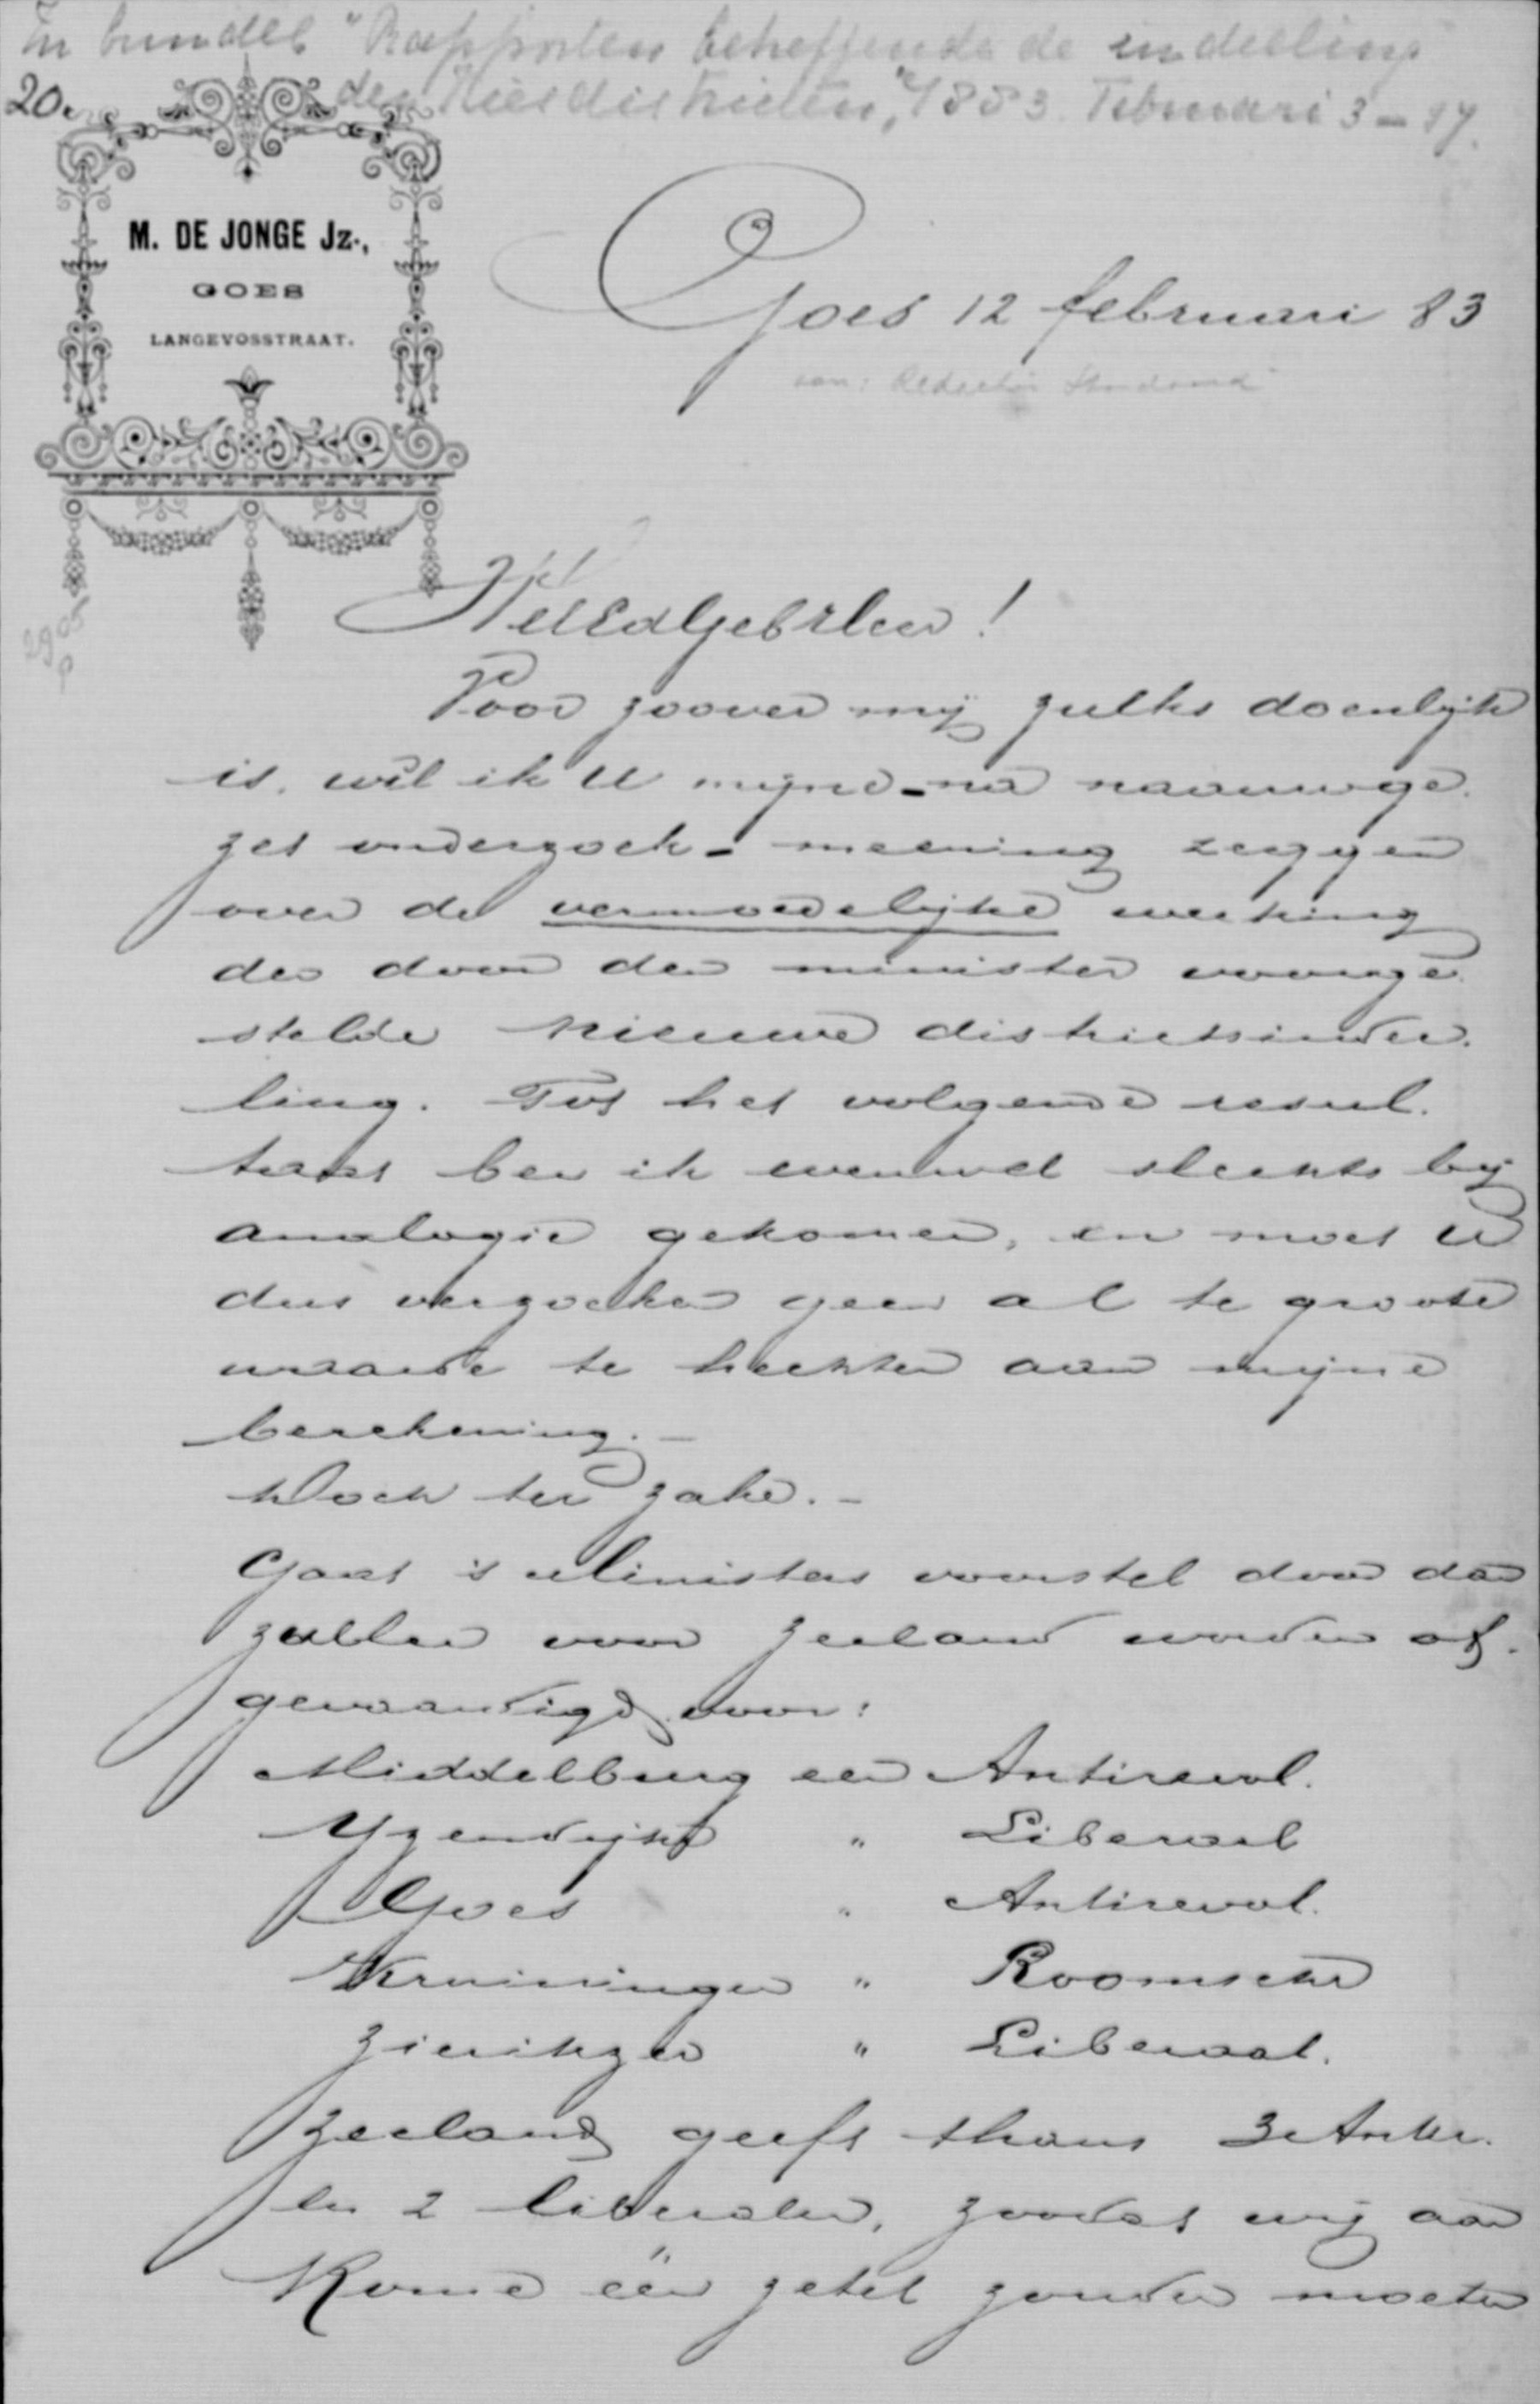 In bundel "Rapporten betreffende de indeeling
20e der Kiesdistricten," 1883. Februari 3-17.
M. DE JONGE Jz.,
GOES
LANGEVOSSTRAAT.
Goes 12 februari 83
aan: Redactie Standaard
WelEdGebrHeer!
Voor zoover mij zulks doenlijk
is, wil ik U mijne - na naauwge-
zet onderzoek - meening zeggen
over de vermoedelijke werking
der door den minister voorge-
stelde nieuwe districtsindee-
ling. Tot het volgende resul-
taat ben ik evenwel slechts bij
analogie gekomen, en moet U
dus verzoeken geen al te groote
waarde te hechten aan mijne
berekening. -
Doch ter zake. -
Gaat 's Ministers voorstel door dan
zullen voor Zeeland worden af-
gevaardigd voor:
Middelburg een Antirevol.
Yzendijke " Liberaal
Goes " Antirevol.
Kruiningen " Roomsche
Zierikzee " Liberaal.
Zeeland geeft thans 3 Antir.
en 2 liberalen, zoodat wij aan
Rome één zetel zouden moeten